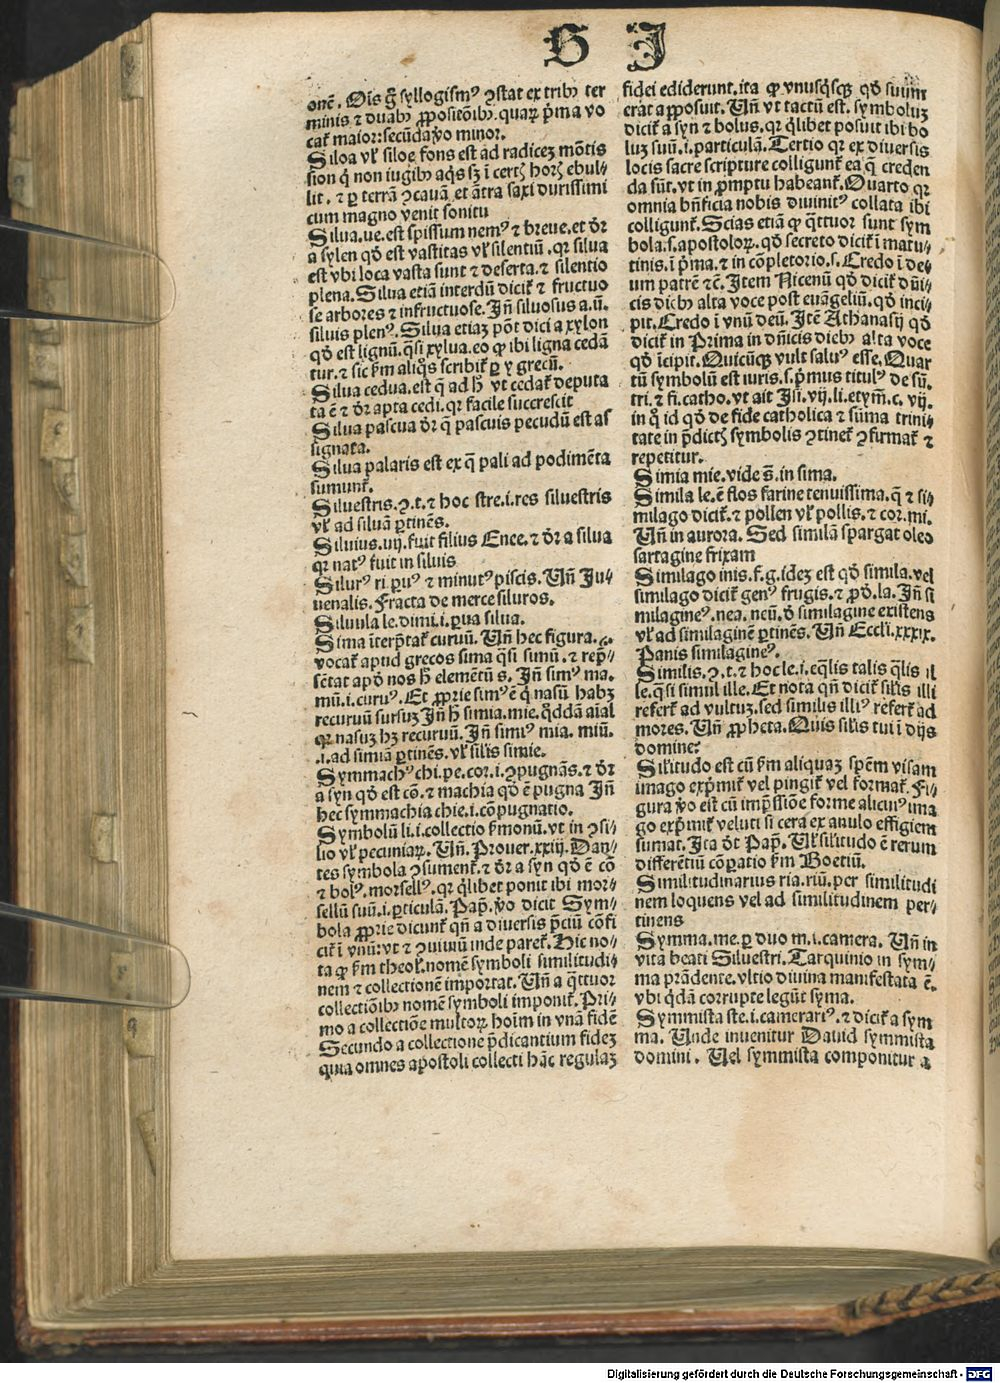 S I
onē. Oīs g̃ syllogism⁹ ꝯstat ex tribꝫ ter
minis ⁊ duabꝫ ꝓpositōibꝫ. quaꝝ p̄ma vo
cat̃ maior: secūda ꝟo minor.
Siloa vl̓ siloe fons est ad radiceꝫ mōtis
sion q̇ non iugibꝫ aq̇s sꝫ ī certꝭ horꝭ ebul⸗
lit. ⁊ ꝑ terrā ꝯcauā et ātra saxi durissimi
cum magno venit sonitu
Silua. ue. est spissum nem⁹ ⁊ breue. et dr̄
a sylen qd̓ est vastitas vl̓ silentiū. qꝛ silua
est vbi loca vasta sunt ⁊ deserta. ⁊ silentio
plena. Silua etiā interdū dicit̃ ⁊ fructuo
se arbores ⁊ infructuose. Jn̄ siluosus a.ū.
siluis plen⁹. Silua etiaꝫ pōt dici a xylon
qd̓ est lignū. q̄si xylua. eo ꝙ ibi ligna cedā
tur. ⁊ sic ẜm aliq̇s scribit̃ ꝑ y grecū.
Silua cedua. est q̄ ad h̓ vt cedat̃ deputa
ta ē ⁊ dr̄ apta cedi. qꝛ facile succrescit
Silua pascua dr̄ q̄ pascuis pecudū est as
signata.
Silua palaris est ex q̄ pali ad podimēta
sumunt̃.
Siluestris. ꝯ.t. ⁊ hoc stre. i. res siluestris
vl̓ ad siluā ꝑtinēs.
Siluius. uij. fuit filius Enee. ⁊ dr̄ a silua
qꝛ nat⁹ fuit in siluis
Silur⁹ ri ꝑu⁹ ⁊ minut⁹ piscis. Un̄ Ju⸗
uenalis. Fracta de merce siluros.
Siluula le. dimi. i. ꝑua silua.
Sima īterp̄tat̃ curuū. Un̄ hec figura.
vocat̃ apud grecos sima q̄si simū. ⁊ rep̄⸗
sētat apd̓ nos h̓ elemētū s. Jn̄ sim⁹ ma.
mū. i. curu⁹. Et ꝓprie sim⁹ ē q̇ nasū habꝫ
recuruū sursuꝫ Jn̄ h̓ simia. mie. q̇ddā aīal
qꝛ nasuꝫ hꝫ recuruū. Jn̄ simi⁹ mia. miū.
.i. ad simiā ꝑtinēs. vl̓ sil̓is simie.
Symmach⁹ chi. pe. cor. i. ꝯpugnās. ⁊ dr̄
a syn qd̓ est cō. ⁊ machia qd̓ ē pugna Jn̄
hec symmachia chie. i. cōpugnatio.
Symbolū li. i. collectio ẜmonū. vt in ꝯsi⸗
lio vl̓ pecuniaꝝ. Un̄. Prouer. xxiij. Dan⸗
tes symbola ꝯsument̃. ⁊ dr̄ a syn qd̓ ē cō
⁊ bol⁹. morsell⁹. qꝛ q̇libet ponit ibi mor⸗
sellū suū. i. ꝑticulā. Pap̄. ꝟo dicit Sym⸗
bola ꝓprie dicunt̃ qn̄ a diuersis p̄ciū cōfi
cit̃ ī vnū: vt ⁊ ꝯuiuiū inde paret̃. Hic no⸗
ta ꝙ ẜm theol̓. nomē symboli similitudi⸗
nem ⁊ collectionē importat. Un̄ a q̄ttuor
collectiōibꝫ nomē symboli imponit̃. Pri⸗
mo a collectiōe multoꝝ hoīm in vnā fidē
Secundo a collectione p̄dicantium fideꝫ
quia omnes apostoli collecti hāc regulaꝫ
fidei ediderunt. ita ꝙ vnusq̇sqꝫ qd̓ suum
erat apposuit. Un̄ vt tactū est. symboluꝫ
dicit̃ a syn ⁊ bolus. qꝛ q̇libet posuit ibi bo
luꝫ suū. i. particulā. Tertio qꝛ ex diuersis
locis sacre scripture colligunt̃ ea q̄ creden
da sūt. vt in promptu habeant̃. Quarto qꝛ
omnia bn̄ficia nobis diuinit⁹ collata ibi
colligunt̃. Scias etiā ꝙ q̄ttuor sunt sym
bola. s. apostoloꝝ. qd̓ secreto dicit̃ ī matu⸗
tinis. ī p̄ma. ⁊ in cōpletorio. s. Credo ī de⸗
um patrē ⁊c̄. Jtem Nicenū qd̓ dicit̃ dn̄i⸗
cis diebꝫ alta voce post euāgeliū. qd̓ inci⸗
pit. Credo ī vnū deū. Jtē Athanasij qd̓
dicit̃ in Prima in dn̄icis diebꝫ alta voce
qd̓ īcipit. Quicūqꝫ vult salu⁹ esse. Quar
tū symbolū est iuris. s. p̄mus titul⁹ de sū.
tri. ⁊ fi. catho. vt ait Jsi. vij. li. etym̄. c. vij.
in q̇ id qd̓ de fide catholica ⁊ sūma trini⸗
tate in p̄dictꝭ symbolis ꝯtinet̃ ꝯfirmat̃ ⁊
repetitur.
Simia mie. vide s̄. in sima.
Simila le. ē flos farine tenuissima. q̄ ⁊ si⸗
milago dicit̃. ⁊ pollen vl̓ pollis. ⁊ cor. mi.
Un̄ in aurora. Sed similā spargat oleo
sartagine frixam
Similago inis. f.g. ideꝫ est qd̓ simila. vel
similago dicit̃ gen⁹ frugis. ⁊ ꝓd̓. la. Jn̄ si
milagine⁹. nea. neū. d̓ similagine existens
vl̓ ad similaginē ꝑtinēs. Un̄ Eccl̓i. xxxix.
Panis similagine⁹.
Similis. ꝯ.t. ⁊ hoc le. i. eq̄lis talis q̄lis il
le. q̄si simul ille. Et nota qn̄ dicit̃ sil̓is illi
refert̃ ad vultuꝫ. sed similis illi⁹ refert̃ ad
mores. Un̄ ꝓpheta. Quis sil̓is tui ī dijs
domine?
Sil̓itudo est cū ẜm aliquaꝫ sp̄em visam
imago exp̄mit̃ vel pingit̃ vel format̃. Fi⸗
gura ꝟo est cū imp̄ssiōe forme alicui⁹ ima
go exp̄mit̃ veluti si cera ex anulo effigiem
sumat. Jta dt̄ Pap̄. Ul̓ sil̓itudo ē rerum
differētiū cōꝑatio ẜm Boetiū.
Similitudinarius ria. riū. per similitudi
nem loquens vel ad similitudinem per⸗
tinens
Symma. me. ꝑ duo m. i. camera. Un̄ in
vita beati Siluestri. Tarquinio in sym⸗
ma prādente. vltio diuina manifestata ē.
vbi q̇dā corrupte legūt syma.
Symmista ste. i. camerari⁹. ⁊ dicit̃ a sym
ma. Unde inuenitur Dauid symmista
domini. Uel symmista componitur a
Digitalisierung gefördert durch die Deutsche Forschungsgemeinschaft - DFG